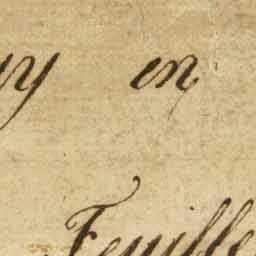 en
Feuille